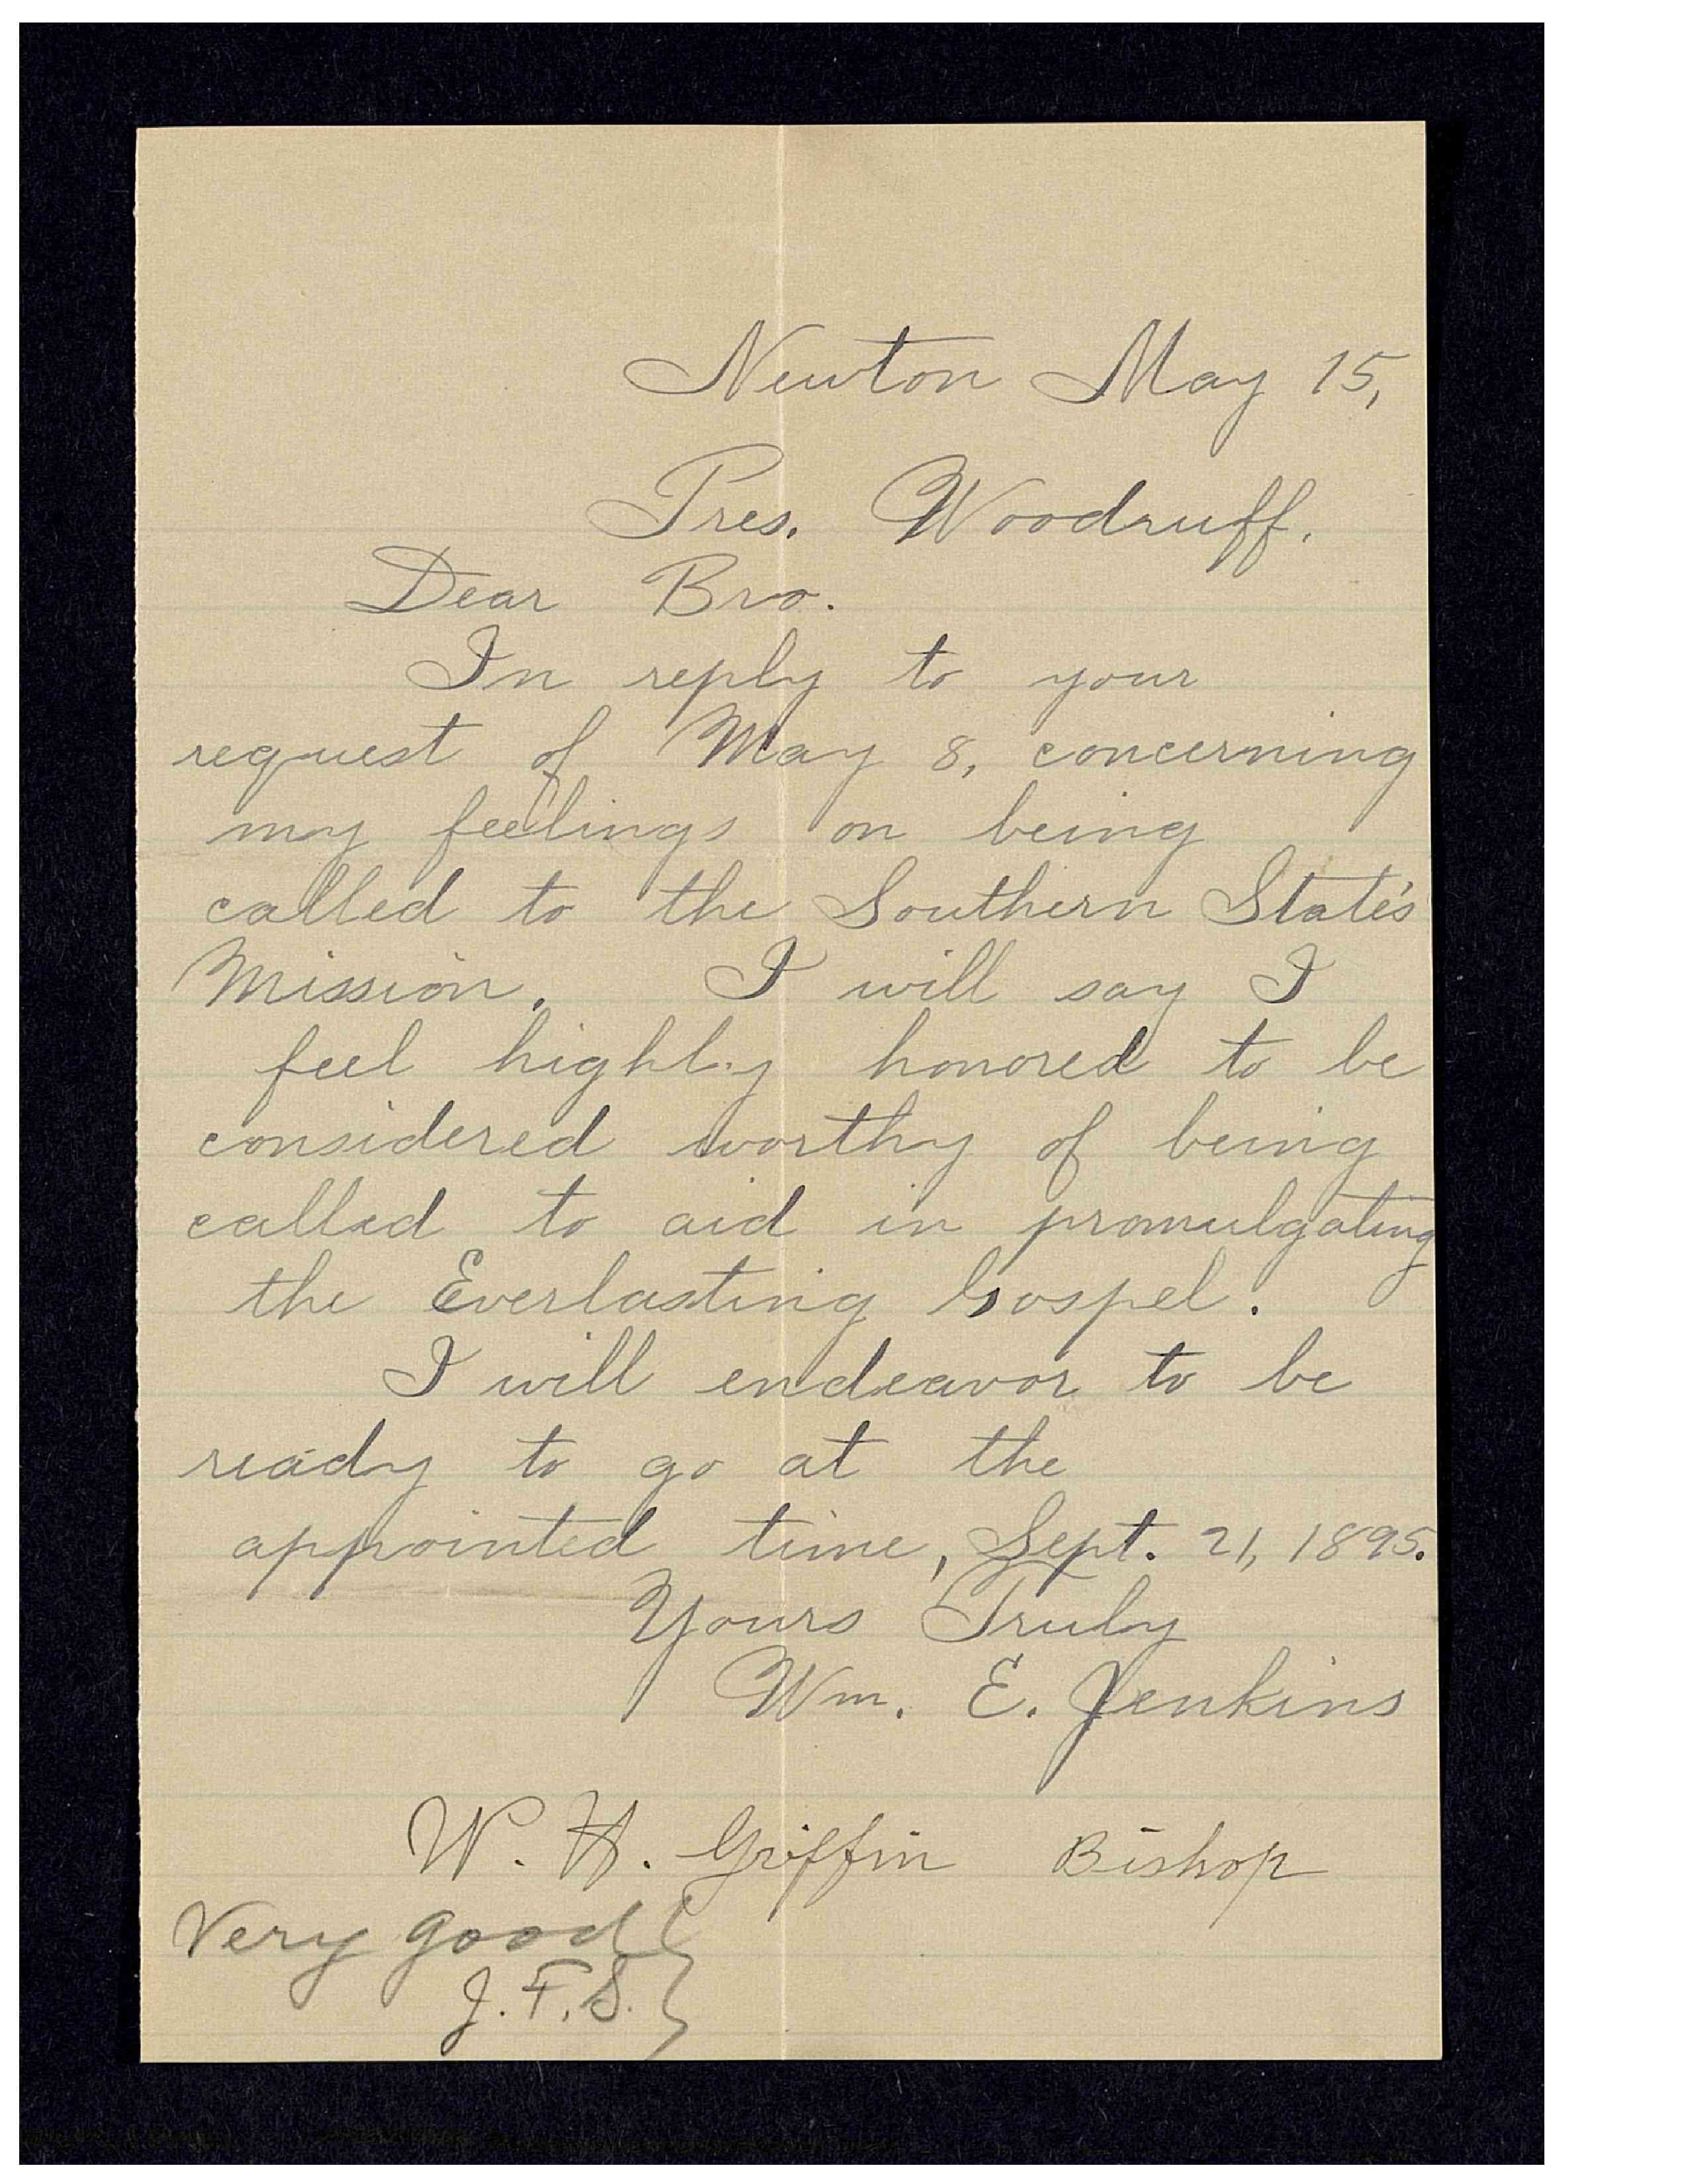 Newton May 15,
Pres. Woodruff.
Dear Bro.
In reply to your
request of May 8, concerning
my feelings on being
called to the Southern State's
Mission. I will say I
feel highly honored to be
considered worthy of being
called to aid in promulgating
the Everlasting Gospel.
I will endeavor to be
ready to go at the
appointed time, Sept. 21, 1895.
Yours Truly
Wm. E. Jenkins
W. H. Griffin Bishop
Very good
J. F. S.